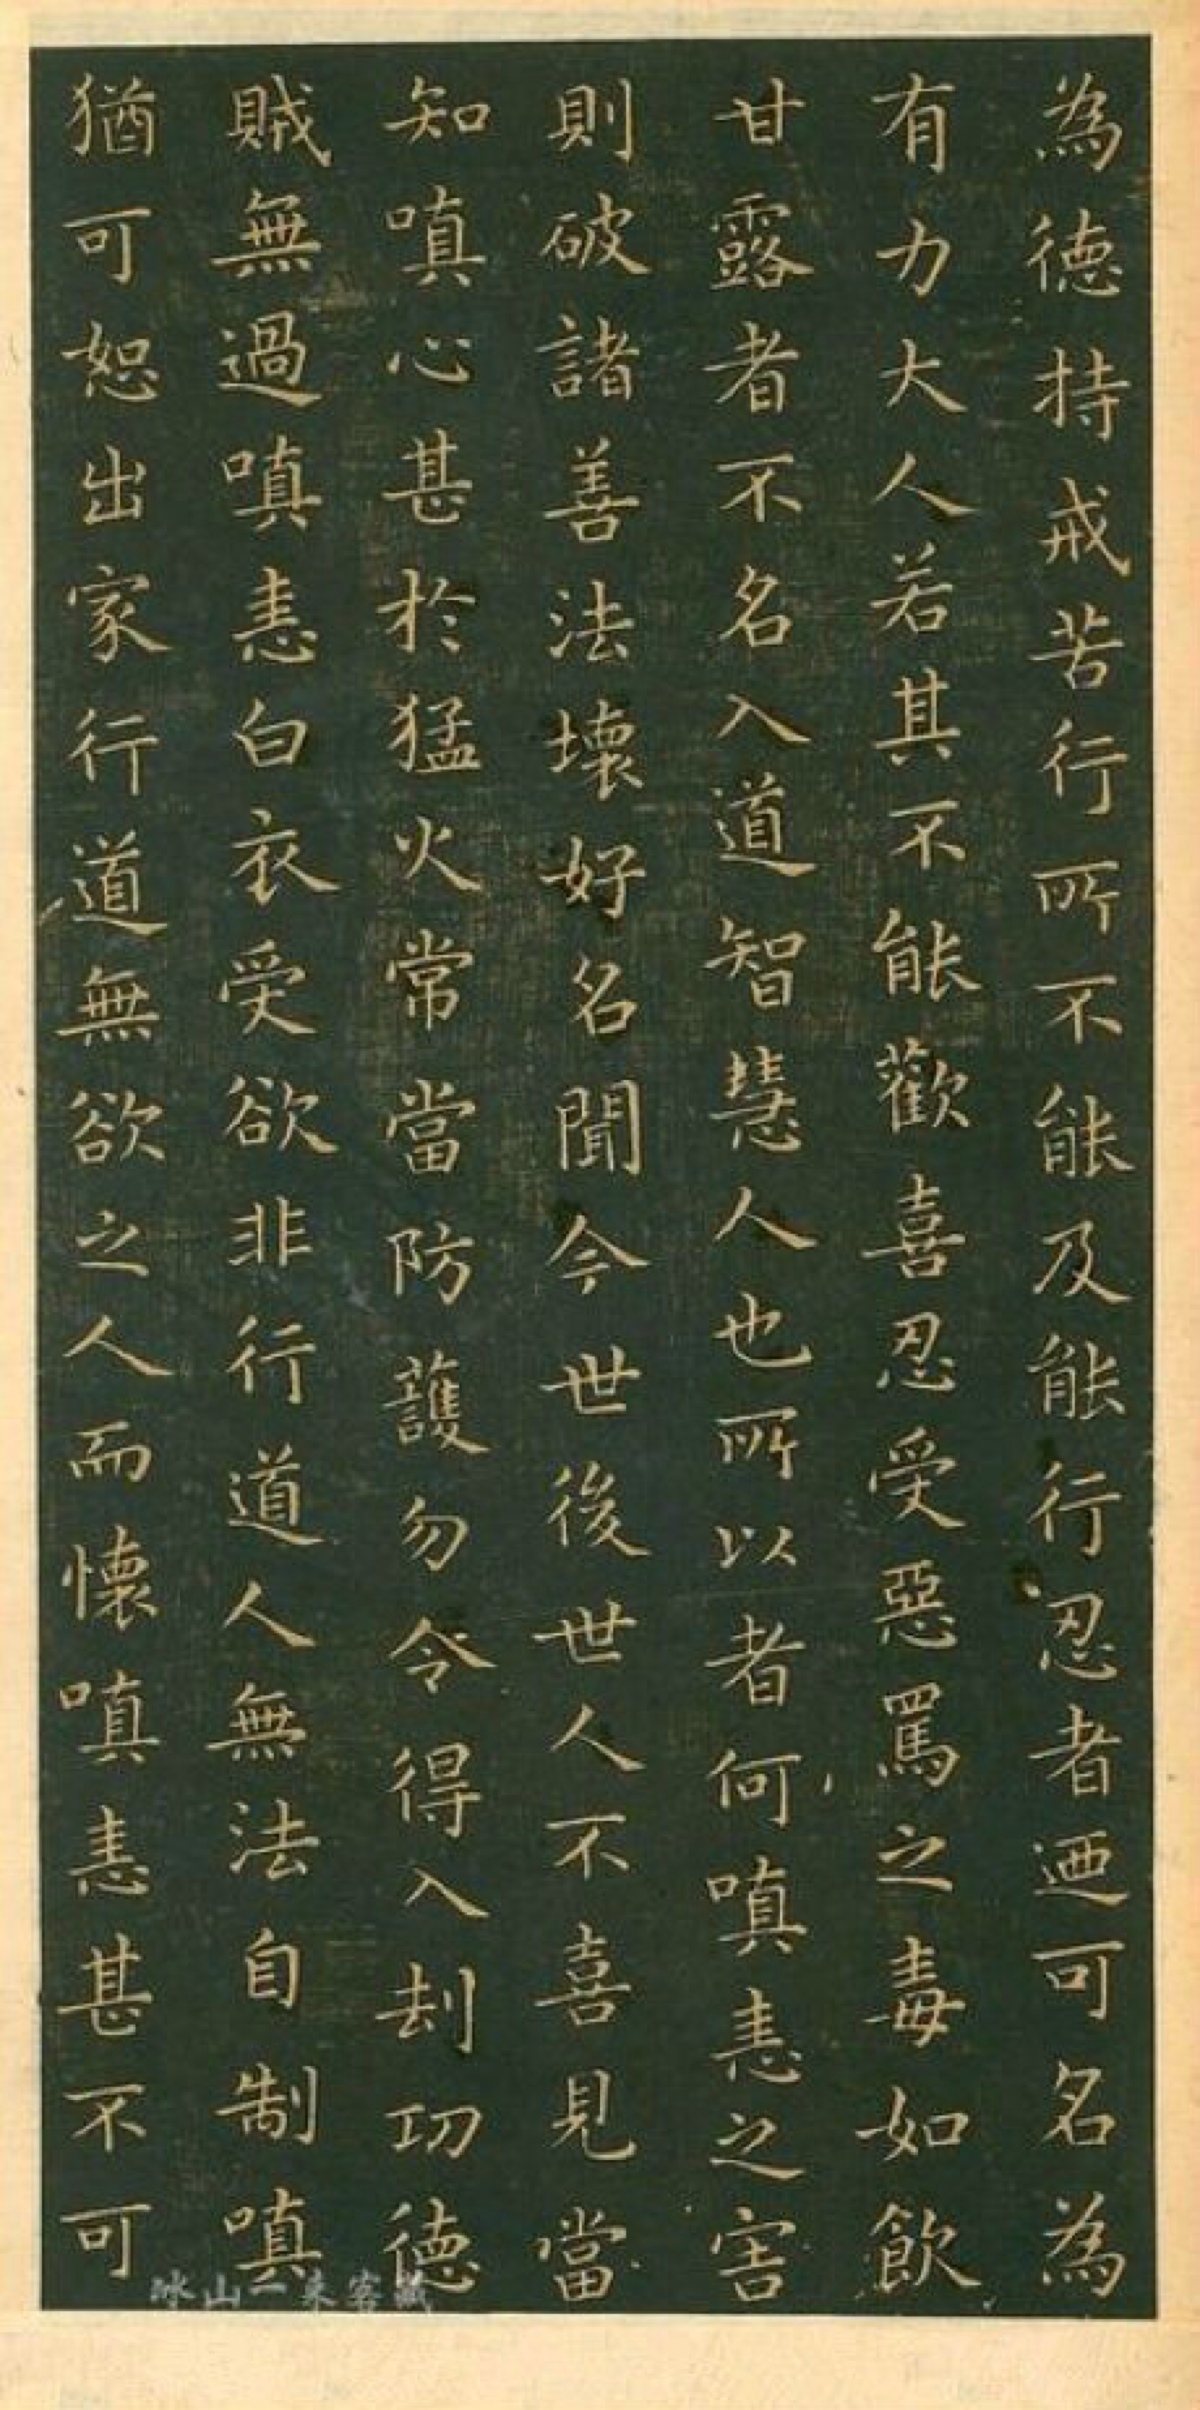 為德持戒苦行所不能及能行忍者迺可名為
有力大人若其不能歡喜忍受惡罵之毒如飲
甘露者不名入道智慧人也所以者何嗔恚之害
則破諸善法壞好名聞今世後世人不喜見當
知嗔心甚於猛火常當防護勿令得入刦功德
賊無過嗔恚白衣受欲非行道人無法自制嗔
猶可恕出家行道無欲之人而懷嗔恚甚不可
冰山一來客藏